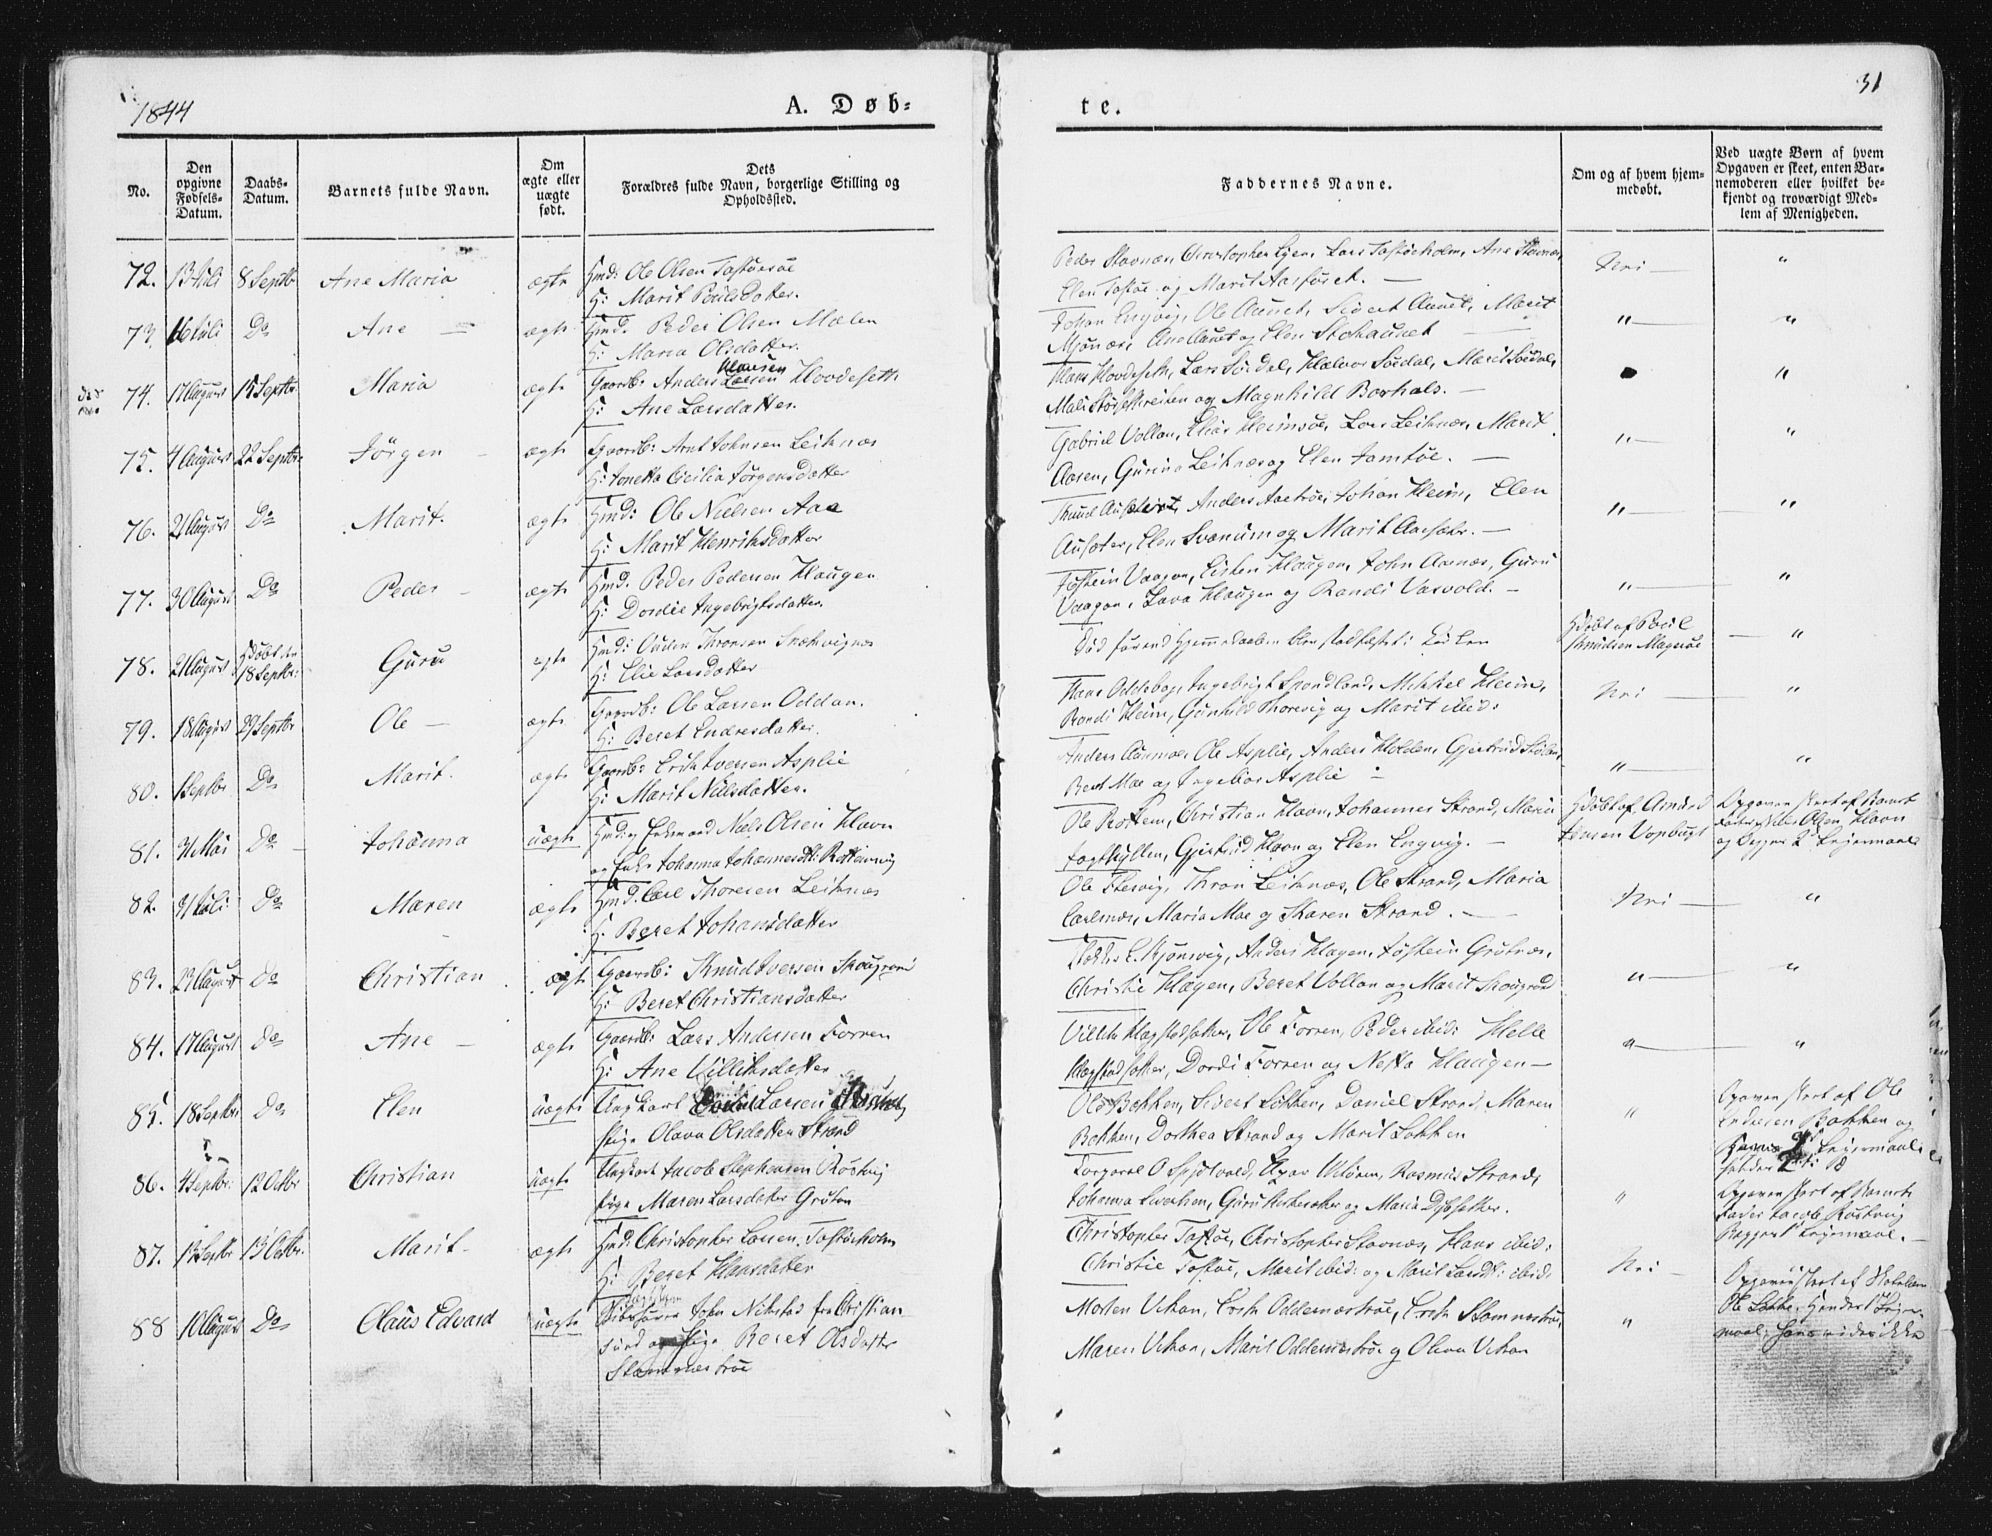 1844
A. Døb-
te.
31
No.
Den opgivne Fødsels-Datum.
Daabs-Datum.
Barnets fulde Navn.
Om ægte eller uægte født.
Dets Forældres fulde Navn, borgerlige Stilling og Opholdssted.
Faddernes Navne.
Om og af hvem hjem-medøbt.
Ved uægte Børn af hvem Opgaven er skeet, enten Bar-nemoderen eller hvilket be-kjendt og troværdigt Med-lem af Menigheden.
72. 13 Juli 8 Septbr Ane Maria ægte Hmd: Ole Olsen
H: Marit Poulsdatter.
Peder Stavnæs, Christopher Lyen, Lars Tostøeholm, Ane Stavnæs,
Elen Tostøe og Marit Aarsøret. —
Nei — "
73. 16 Juli Do Ane — ægte Hmd. Peder Olsen Mælen
H: Maria Olsdatter.
Johan Engvig, Ole Aunet, Sivert Aunet, Marit
Mjønæs, Ane Aunet og Elen Stokaunet
" — "
74. 17 August 15 Septbr Maria ægte Gaardb: Anders Larsen Klausen Hovdeseth
H: Ane Larsdatter.
Hans Hovdeseth, Lars Sødal, Halvor Sødal, Marit Sødal,
og Magnhild Boxhals. —
"
75. 4 August 22 Septbr: Jörgen — ægte Gaardb: Arnt Johnsen Leiknæs
H: Jonetta Cicilia Jørgensdatter
Gabriel Vollan, Elias Heimsøe, Lars Leiknæs, Marit
Aasen, Gurina Leiknæs og Elen Tomtøe. —
" — "
76. 21 August Do Marit. ægte Hmd: Ole Nielsen Aae
H: Marit Henriksdatter
Anders Aaetrøe, Johan Heim, Elen
Ausæter, Elen Svanum og Marit Aarsæter. —
" — "
77. 30 August Do Peder — ægte Hmd. Peder Pedersen Haugen
H: Dordie Ingebrigtsdatter.
Jostein Vaagan, Haugen, John Aarnæs, Guru
Vaagan, Lava Haugen og Randi Vasvold. —
" — "
78. 21 August Hdøbt den 18 Septbr: Guru ægte Hmd: Thronsen
H: Elie Larsdatter
Død førend Hjemmedaaben blev stadfæstet i Kirken
Hdøbt af Poul Knudsen Magerøe — "
79. 18 August 29 Septbr Ole — ægte Gaardb: Ole Larsen Oddan.
H: Beret Endresdatter.
Hans Oddebog, Ingebrigt Spondland, Mikkel Heim,
Randi Heim, Gunhild Thorsvig og Marit ibid:
Nei — "
80. 1 Septbr Do Marit. ægte Gaardb: Erik Iversen Asplie
H: Marit Nielsdatter.
Anders Aunmoe, Ole Asplie, Anders Holden, Gjertrud Stølen,
Beret Moe og Ingebor Asplie —
" — "
81. 31 Mai Do — Johanna uægte Hmd: og Enkemand Niels Olsen Havn
og Enke Johanna Johannesdt: Rottemvig
Ole Rottem, Christian Havn, Johannes Strand, Maria
Jægthyllen, Gjertrud Havn og Elen Engvig. —
Hdøbt af Amund Jensen Vopbugt
Opgaven skeet af Barnets
Fader Niels Olsen Havn
og Begges 2det Leiermaal
82. 31 Juli Do Maren ægte Hmd. Carl Thoresen Leiknæs
H: Beret Johansdatter
Ole Thesvig, Thron Leiknæs, Ole Strand, Maria
Carlsmoe, Maria Moe og Karen Strand. —
Nei — "
83. 23 August Do Christian ægte Gaardb: Knud Iversen Skougrand
H: Beret Christiansdatter
Anders Hagen, Jostein Grøtnæs,
Christie Hagen, Beret Vollan og Marit Skougrand
" — "
84. 17 August Do Ane — ægte Gaardb: Lars Andersen Forren
H: Ane Villiksdatter
Villik Hagstadsætter, Ole Forren, Peder ibid: Helle
Hagstadsætter, Dordi Forren og Netta Haugen —
" — "
85. 18 Septbr Do Elen uægte Ungkarl Larsen
Pige Olava Olsdatter Strand
Ole Bakken, Sivert Løkken, Daniel Strand, Maren
Bakken, Dorthea Strand og Marit Løkken
"
Opgaven skeet af Ole
Endresen Bakken og
Leiermaal
86. 4 Septbr: 12 Octbr Christian uægte Ungkarl Jacob Stephensen Røstvig
Pige Maren Larsdatter Grøten
Rasmus Strand,
Johanna Sivertsen, og Maria Dybsetter.
"
Opgaven skeet af Barnets
Fader Jacob Røstvig
Begges 1ste Leiermaal. —
87. 13 Septbr 13 Octbr. Marit ægte Hmd: Christopher Larsen Tostøeholm
H: Beret Hansdatter
Christopher Tostøe, Christopher Stavnæs, Hans ibid:
Christie Tostøe, Marit ibid: og Marit Larsdt: ibid:
Nei —
88 10 August Do Claus Edvard uægte John Nikstad fra Christian-
sund og Pige Beret Olsdatter
Stamnestrøe
Morten Vikan, Erik Oddernæstrøe, Erik Stamnestrøe,
Maren Vikan, Marit Oddernæstrøe og Olava Vikan
"
Opgaven skeet af
Ole Løkke. Hendes 1ste Leier-
maal, hans vides ikke